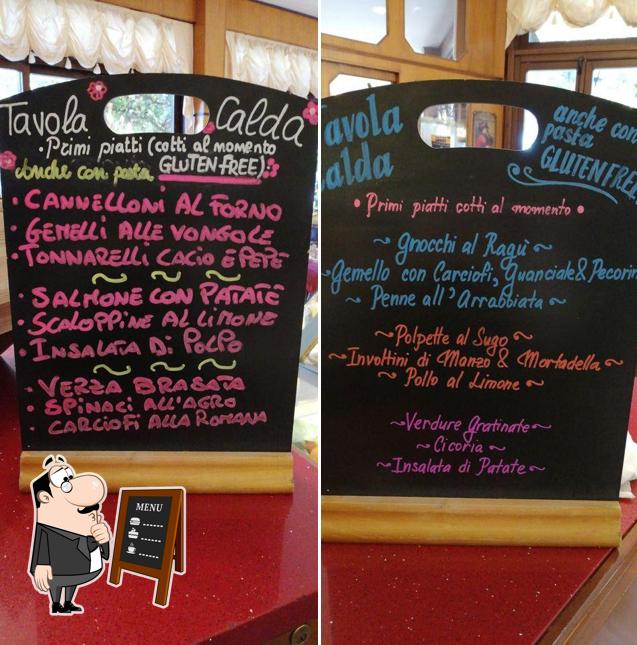 Tavola Calda
• Primi piatti (cotti al momento
Anche con pasta GLUTEN FREE).
• CANNELLONI AL FORNO
• GEMELLI ALLE VONGOLE
• TONNARELLI CACIO E PEPE
• SALMONE CON PATATE
• SCALOPPINE AL LIMONE
• INSALATA DI POLPO
• VERZA BRASATA
• SPINACI ALL'AGRO
• CARCIOFI ALLA ROMANA
MENU
Tavola
Calda
anche con
pasta
GLUTENFREE
• Primi piatti cotti al momento •
~ Gnocchi al Ragù ~
~ Gemello con Carciofi, Guanciale & Pecorin
~ Penne all'Arrabbiata ~
~ Polpette al Sugo ~
~ Involtini di Manzo & Mortadella ~
~ Pollo al Limone ~
~ Verdure Gratinate ~
~ Cicoria ~
~ Insalata di Patate ~